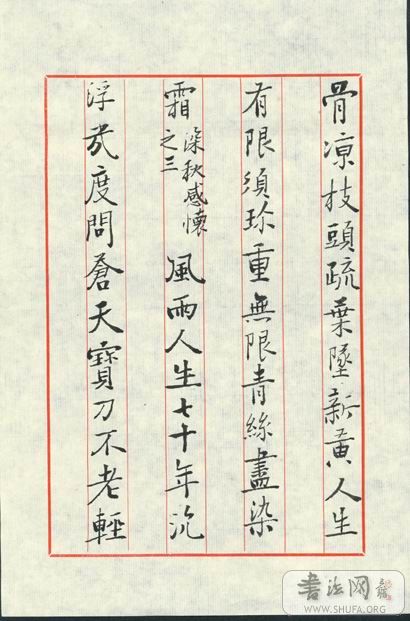 骨凉枝頭疏葉墜新黃人生
有限須珍重無限青絲盡染
霜 染秋感懷之三 風雨人生七十年沉
浮几度問蒼天寶刀不老輕
書法网
WWW.SHUFA.ORG